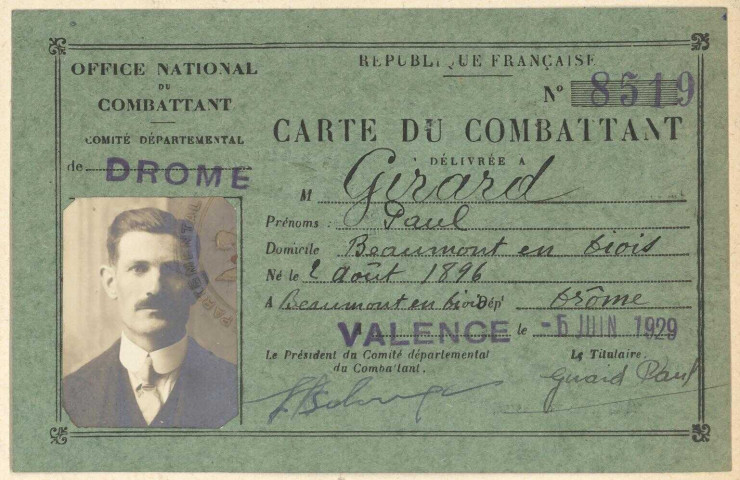 OFFICE NATIONAL
DU
COMBATTANT
COMITÉ DÉPARTEMENTAL
de DROME
RÉPUBLIQUE FRANÇAISE
N° 8519
CARTE DU COMBATTANT
DÉLIVRÉE A
M Girard
Prénoms : Paul
Domicile Beaumont en
Né le 2 Août 1896
A Beaumont en Dépt Drôme
VALENCE le -6 JUIN 1929
Le Président du Comité départemental
du Combattant,
Le Titulaire,
Girard Paul